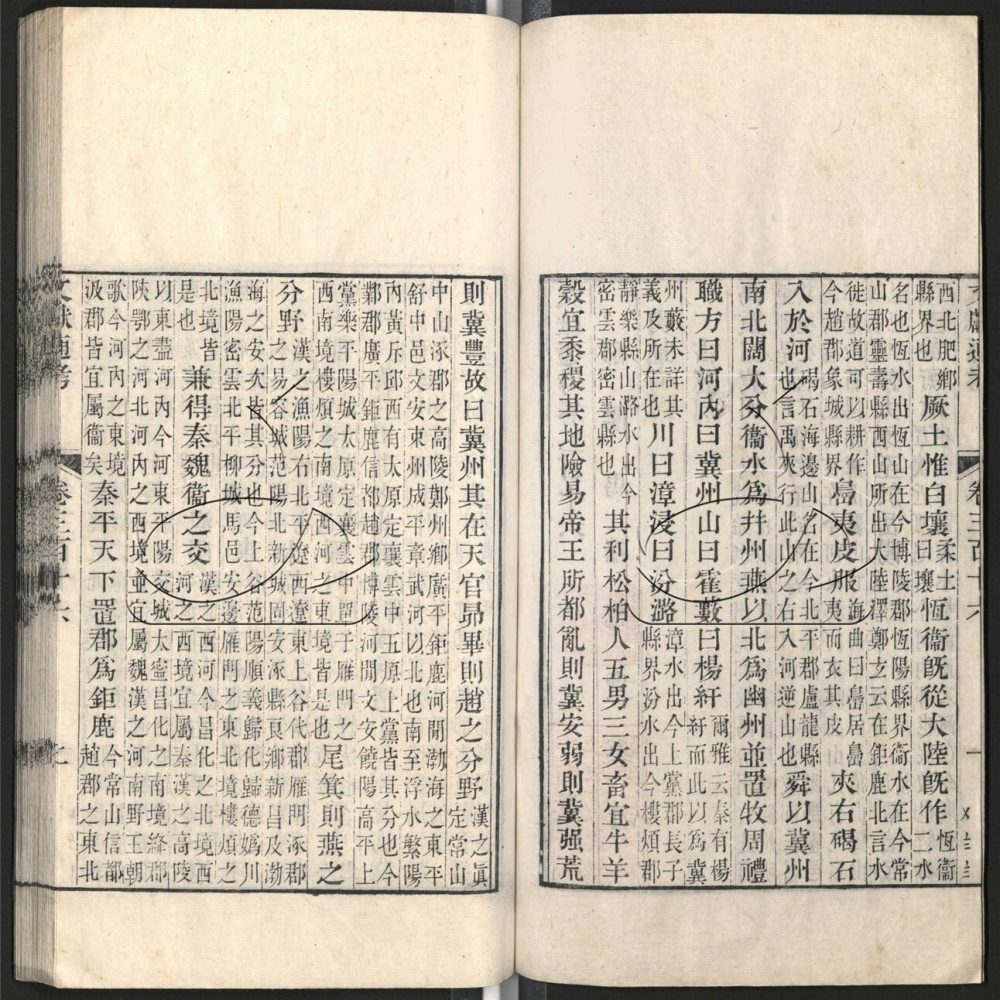 文獻通考 卷三百十六 一
西北肥鄉
縣界也
厥土惟白壤
柔土
曰壤
恆衞既從大陸既作
恆衞
二水
名也恆水出恆山在今博陵郡恆陽縣界衞水在今常
山郡靈壽縣西山所出大陸澤鄭玄云在鉅鹿北言水
徙故道可以耕作
今趙郡象城縣界
島夷皮服
海曲曰島居島
夷而衣其皮
夾右碣石
入於河
碣石海邊山名在今北平郡盧龍縣
也言禹夾行此山之右入河逆山也
舜以冀州
南北闊大分衞水為幷州燕以北為幽州並置牧周禮
職方曰河內曰冀州山曰霍藪曰楊紆
爾雅云秦有楊
紆而此以為冀
州藪未詳其
義及所在也
川曰漳浸曰汾潞
漳水出今上黨郡長子
縣界汾水出今樓煩郡
靜樂縣山潞水出今
密雲郡密雲縣也
其利松柏人五男三女畜宜牛羊
穀宜黍稷其地險易帝王所都亂則冀安弱則冀强荒
則冀豐故曰冀州其在天官昴畢則趙之分野
漢之眞
定常山
中山涿郡之高陵鄭州鄉廣平鉅鹿河間渤海之東平
舒中邑文安東州成平章武河以北也南至浮水繁陽
內黃斥邱西有太原定襄雲中五原上黨皆其分也今
鄴郡廣平鉅鹿信都趙郡博陵河間文安饒陽高平上
黨樂平陽城太原定襄雲中單于雁門之
西南境樓煩之南境西河之東境皆是也
尾箕則燕之
分野
漢之漁陽右北平遼西遼東上谷代郡雁門涿郡
之易容城范陽北新城固安涿縣良鄉新昌及渤
海之安次皆其分也今上谷范陽順義歸化歸德嬀川
漁陽密雲北平柳城馬邑安邊雁門之東北境樓煩之
北境皆
是也
兼得秦魏衞之交
漢之西河今昌化之北境西
河之西境宜屬秦漢之高陵
以東盡河內今河東平陽交城太寧昌化之南境絳郡
陝鄂之河北河內之西境並宜屬魏漢之河南野王朝
歌今河內之東境
汲郡皆宜屬衞矣
秦平天下置郡為鉅鹿
今常山信都
趙郡之東北
文獻通考 卷三百十六